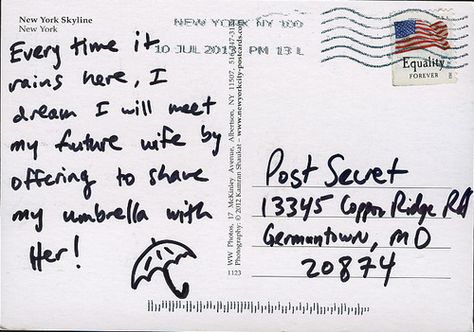 New York Skyline
New York
NEW YORK NY 100
10 JUL 2013 PM 13 L
Equality
FOREVER
Every time it
rains here, I
dream I will meet
my future wife by
offering to share
my umbrella with
Her!
WW Photos, 17 McKinley Avenue, Albertson, NY 11507, 516-317-31
Photography: © 2012 Kamran Shaukat – www.newyorkcity-postcards.com
1123
Post Secret
13345 Copper Ridge Rd
Germantown, MD
20874